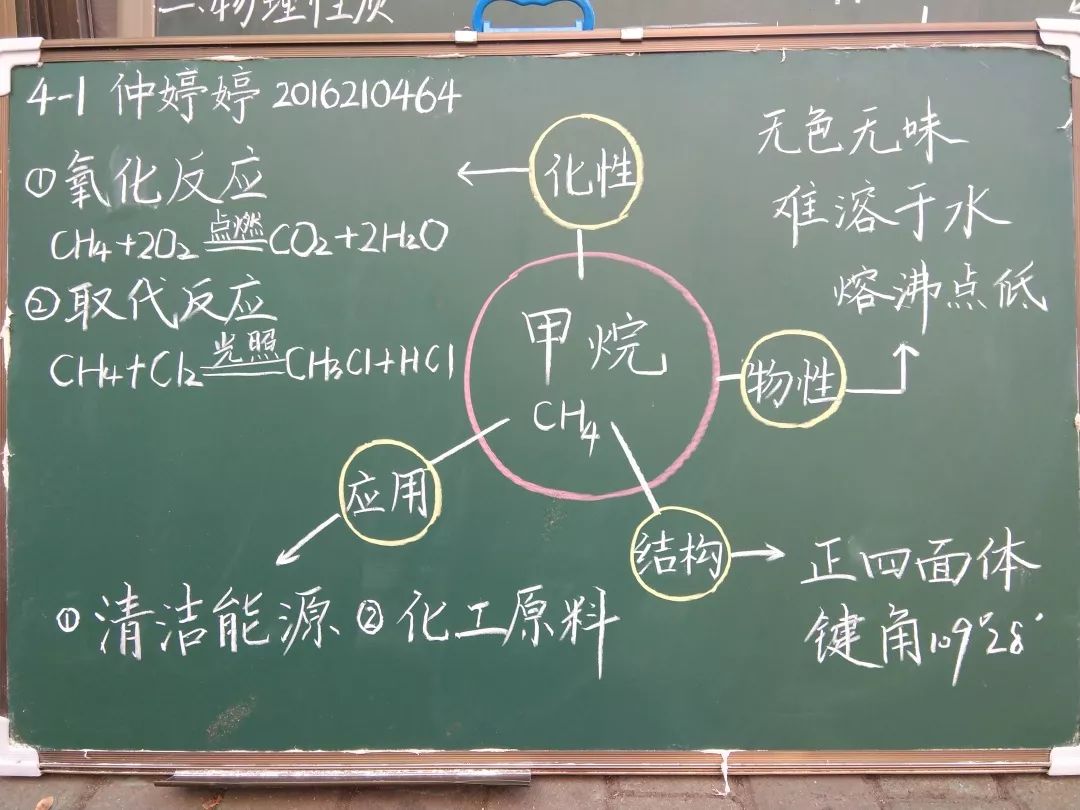 二.物理性质
4-1 仲婷婷 2016210464
①氧化反应
点燃
CH₄+2O₂══CO₂+2H₂O
②取代反应
光照
CH₄+Cl₂══CH₃Cl+HCl
化性
无色无味
难溶于水
熔沸点低
甲烷
CH₄
物性
应用
结构
①清洁能源 ②化工原料
正四面体
键角109°28′